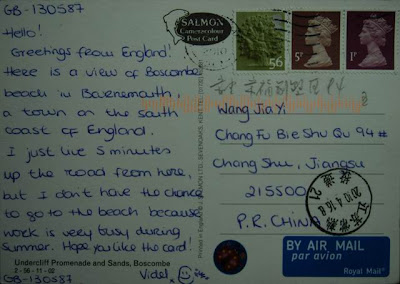 GB-130587
Hello!
Greetings from England!
Here is a view of Boscombe
beach in Bournemouth,
a town on the south
coast of England.
I just live 5 minutes
up the road from here,
but I don't have the chance
to go to the beach because
work is very busy during
summer. Hope you like the card!
Undercliff Promenade and Sands, Boscombe
2-56-11-02
Videl
GB-130587
SALMON
Cameracolour
Post Card
56
5p
1P
94
Wang Jia Yi
Chang Fu Bie Shu Qu 94#
Chang Shu, Jiangsu
215500
P.R. CHINA
BY AIR MAIL
par avion
Royal Mail